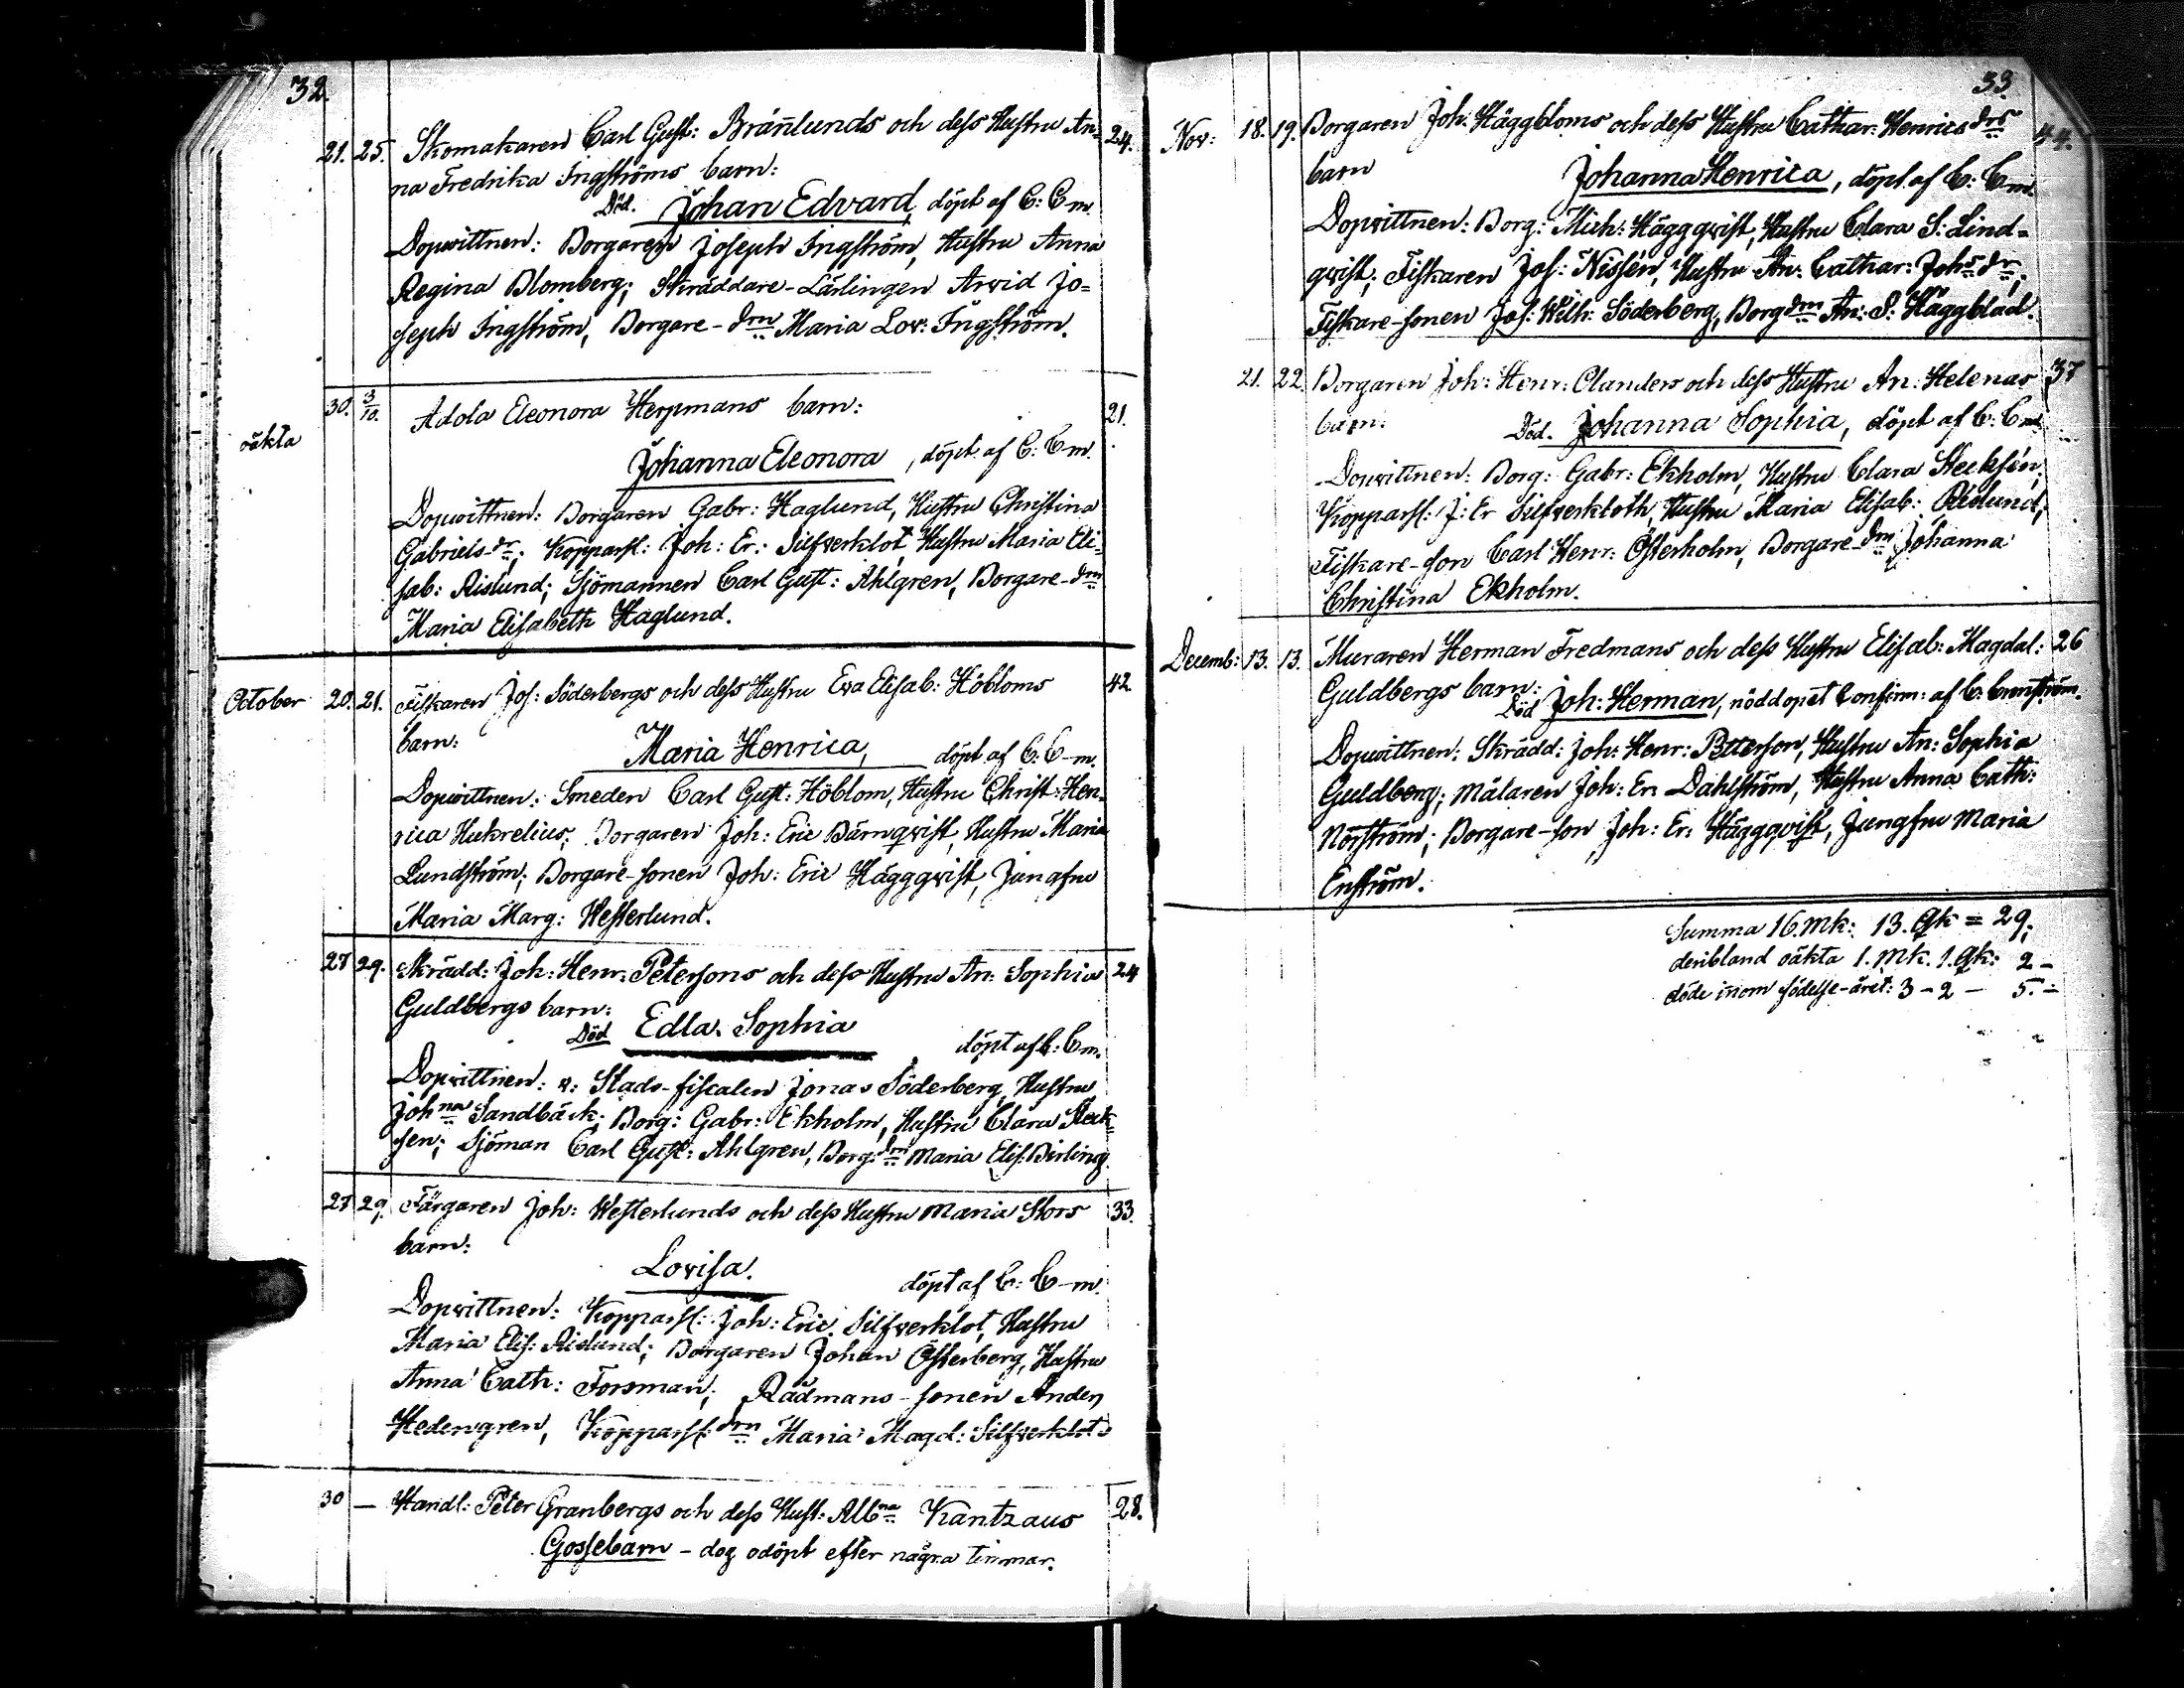 32.
21. 25. Skomakaren Carl Gust: Brän̄lunds och dess Hustru An- 24.
na Fredrika Ingströms barn:
Död. Johan Edvard, döpt af C: C-m.
Dopwittnen: Borgaren Joseph Ingström, Hustru Anna
Regina Blomberg; Skräddare-Lärlingen Arvid Jo-
seph Ingström, Borgare-drn Maria Lov: Ingström.
oäkta 30. 3/10. Adola Eleonora Herpmans barn: 21.
Johanna Eleonora, döpt af C: C-m.
Dopwittnen: Borgaren Gabr: Haglund, Hustru Christina
Gabriels-dr; Kopparsl: Joh: Er: Silfverklot, Hustru Maria Eli-
sab: Rislund; Sjömannen Carl Gust: Ahlgren, Borgare-drn
Maria Elisabeth Haglund.
October 20. 21. Fiskaren Jos: Söderbergs och dess Hustru Eva Elisab: Höbloms 42.
barn:
Maria Henrica, döpt af C: C-m.
Dopwittnen: Smeden Carl Gust: Höblom, Hustru Christ: Hen-
rica Hukrelius; Borgaren Joh: Eric Bärnqvist, Hustru Maria
Lundström; Borgare-sonen Joh: Eric Häggqvist, Jungfru
Maria Marg: Westerlund.
27 29. Skrädd: Joh: Henr: Petersons och dess Hustru An: Sophia 24
Guldbergs barn:
Död Edla Sophia
döpt af C: C-m.
Dopwittnen: v: Stads-fiscalen Jonas Söderberg, Hustru
Joh:na Sandbäck; Borg: Gabr: Ekholm, Hustru Clara Steck-
sen; Sjöman Carl Gust: Ahlgren, Borg:drn Maria Elis: Birling.
27 29. Färgaren Joh: Westerlunds och dess Hustru Maria Stors 33.
barn:
Lovisa.
döpt af C: C-m.
Dopwittnen: Kopparsl: Joh: Eric Silfverklot, Hustru
Maria Elis: Rislund; Borgaren Johan Österberg, Hustru
Anna Cath: Forsman; Rådmans-sonen Anders
Hedengren, Kopparsl:drn Maria Magd: Silfverklot.
30 — Handl: Peter Granbergs och dess Hust: Alb:na Kantzaus 28.
Gossebarn - dog odöpt efter några timmar.
33.
Nov: 18. 19. Borgaren Joh: Häggbloms och dess Hustru Cathar: Henricsdrs 44.
barn
Johanna Henrica, döpt af C: C-m.
Dopwittnen: Borg: Mich: Häggqvist, Hustru Clara S: Lind-
qvist; Fiskaren Jos: Nissén, Hustru An: Cathar: Johsdr;
Fiskare-sonen Jos: Wilh: Söderberg, Borgdrn An: S: Häggblad.
21. 22. Borgaren Joh: Henr: Olanders och dess Hustru An: Helenas 37
barn:
Död. Johanna Sophia, döpt af C: C-m.
Dopwittnen: Borg: Gabr: Ekholm, Hustru Clara Stecksén;
Kopparsl: J: Er Silfverkloth, Hustru Maria Elisab: Rislund;
Fiskare-son Carl Henr: Österholm, Borgare-drn Johanna
Christina Ekholm.
Decemb: 13. 13. Muraren Herman Fredmans och dess Hustru Elisab: Magdal: 26
Guldbergs barn:
Död Joh: Herman, nöddöpt Confirm: af C:
Dopwittnen: Skrädd: Joh: Henr: Petterson, Hustru An: Sophia
Guldberg; Målaren Joh: Er: Dahlström, Hustru Anna Cath:
Norström; Borgare-son Joh: Er: Häggqvist, Jungfru Maria
Enström.
Summa 16. Mk: 13. Qk = 29;
deribland oäkta 1. Mk. 1. Qk: 2 -
döde inom födelse-året: 3 - 2 - 5. -